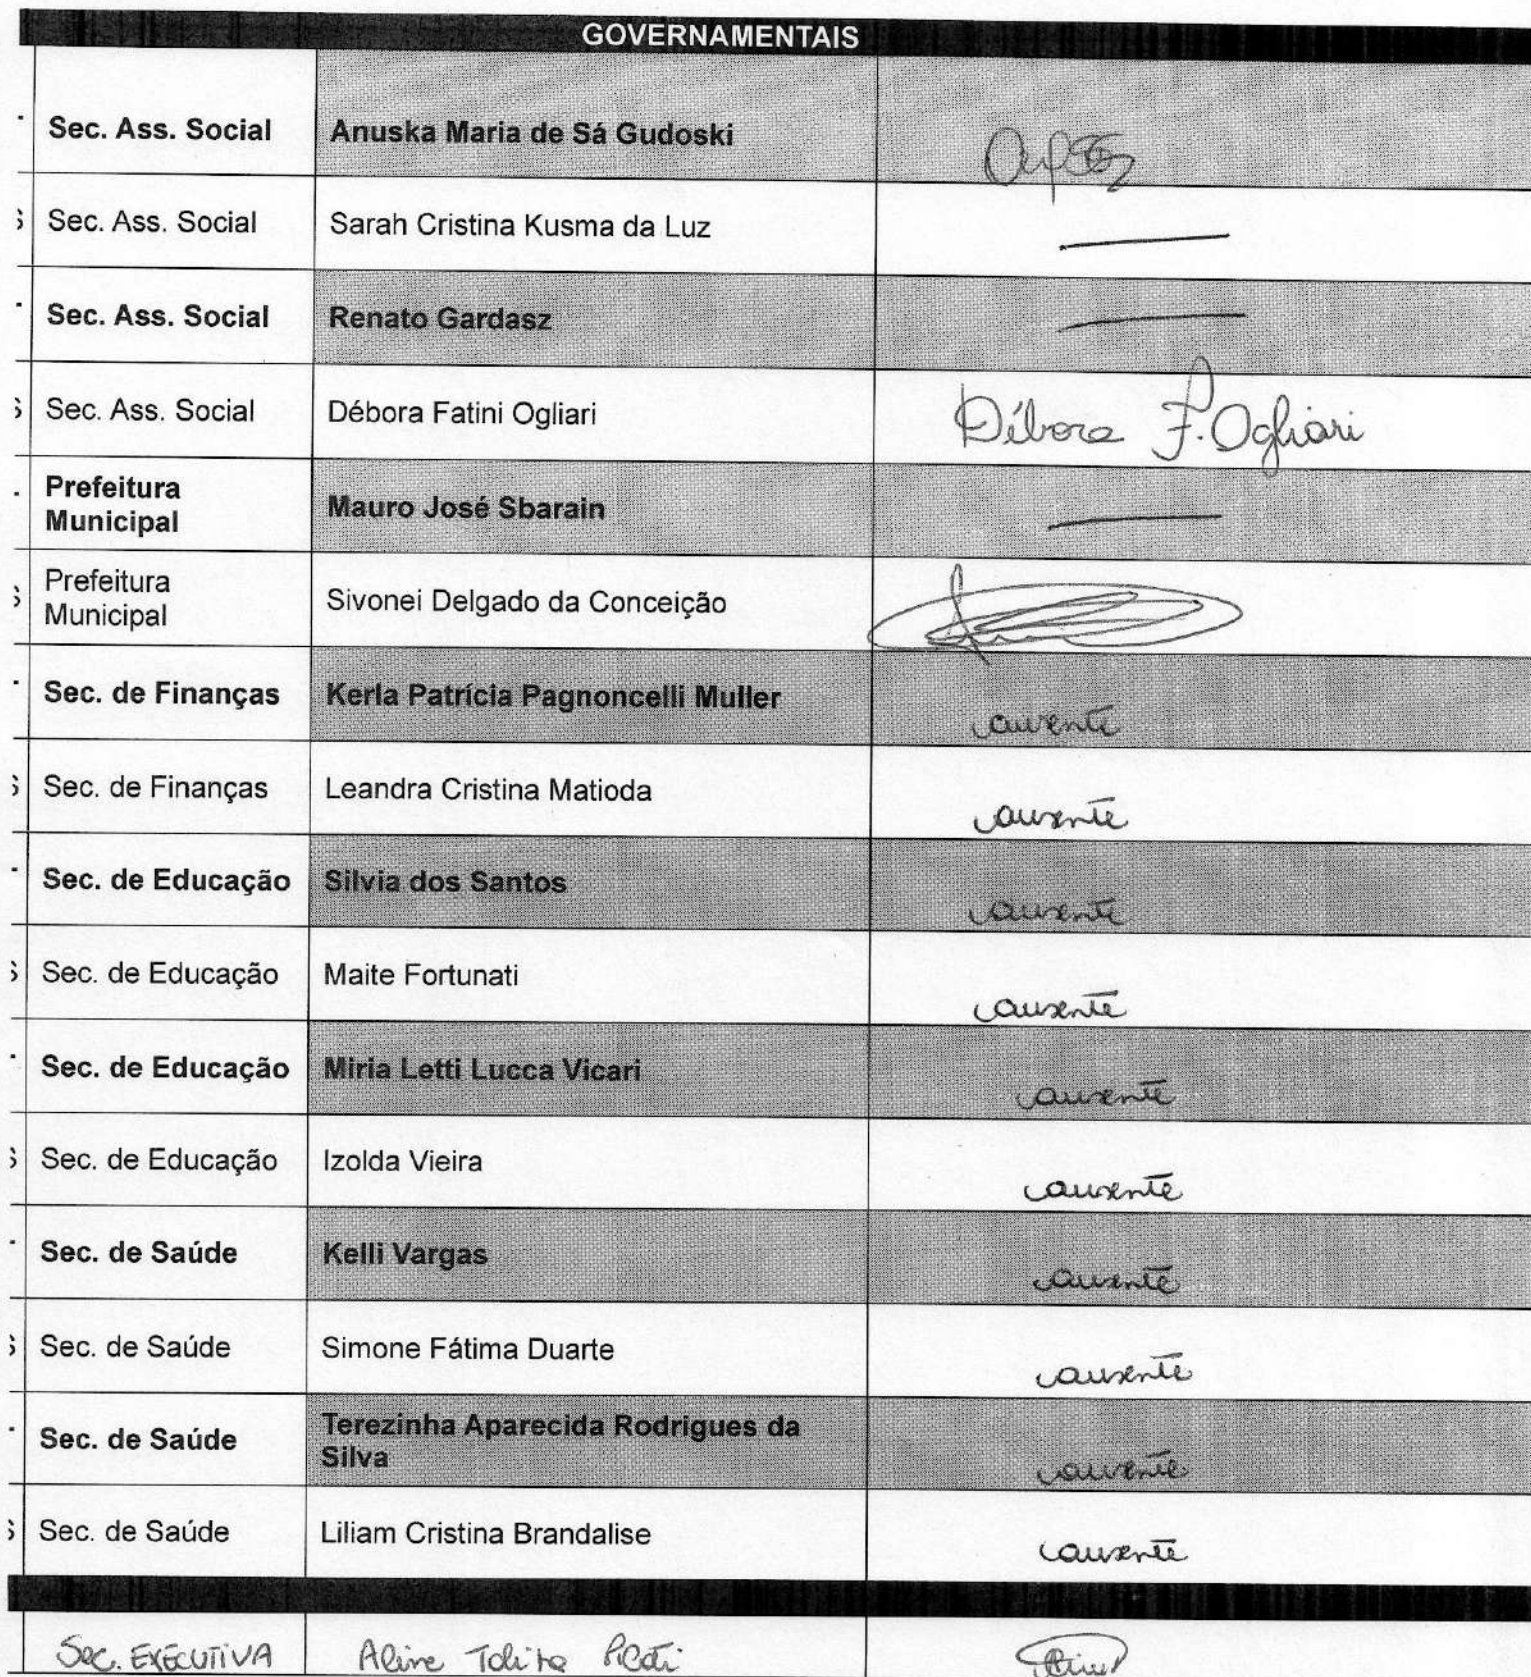 GOVERNAMENTAIS
Sec. Ass. Social Anuska Maria de Sá Gudoski
S Sec. Ass. Social Sarah Cristina Kusma da Luz
Sec. Ass. Social Renato Gardasz
S Sec. Ass. Social Débora Fatini Ogliari Débora F. Ogliari
Prefeitura
Municipal Mauro José Sbarain
S Prefeitura
Municipal Sivonei Delgado da Conceição
Sec. de Finanças Kerla Patrícia Pagnoncelli Muller ausente
S Sec. de Finanças Leandra Cristina Matioda ausente
Sec. de Educação Silvia dos Santos ausente
S Sec. de Educação Maite Fortunati ausente
Sec. de Educação Miria Letti Lucca Vicari ausente
S Sec. de Educação Izolda Vieira ausente
Sec. de Saúde Kelli Vargas ausente
S Sec. de Saúde Simone Fátima Duarte ausente
Sec. de Saúde Terezinha Aparecida Rodrigues da
Silva ausente
S Sec. de Saúde Liliam Cristina Brandalise ausente
Sec. EXECUTIVA Aline